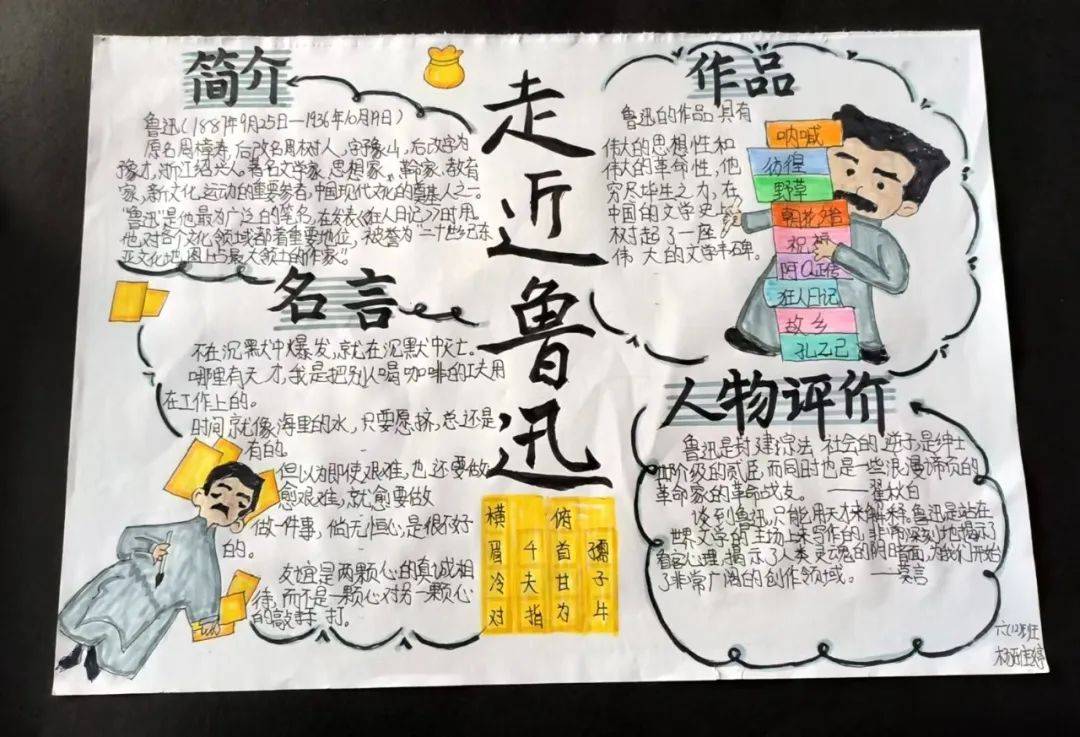 走近鲁迅
简介
鲁迅(1881年9月25日—1936年10月19日)
原名周樟寿,后改名周树人,字豫山,后改字为
豫才,浙江绍兴人。著名文学家、思想家、革命家、教育
家、新文化运动的重要参者,中国现代文化的奠基人之一。
"鲁迅"是他最为广泛的笔名,在发表《狂人日记》时用。
他对各个文化领域都着重要地位,被誉为"二十世纪东
亚文化地图上占最大领土的作家。"
名言
不在沉默中爆发,就在沉默中灭亡。
哪里有天才,我是把别人喝咖啡的工夫用
在工作上的。
时间就像海里的水,只要愿挤,总还是
有的。
但以为即使艰难,也还要做
愈艰难,就愈要做
做一件事,倘无恒心,是很不好
的。
友谊是两颗心的真诚相
待,而不是一颗心对另一颗心
的敲打。
横眉冷对
千夫指
俯首甘为
孺子牛
作品
鲁迅的作品具有
伟大的思想性和
伟大的革命性,他
穷尽毕生之力,在
中国的文学史上
树起了一座
伟大的文学丰碑。
呐喊
彷徨
野草
朝花夕拾
祝福
阿Q正传
狂人日记
故乡
孔乙己
人物评价
鲁迅是封建宗法社会的逆子,是绅士
阶级的贰臣,而同时也是一些浪漫谛克的
革命家的革命战友。——瞿秋白
谈到鲁迅,只能用天才来解释。鲁迅是站在
世界文学的立场上来写作的,非常深刻地揭示了
看客心理,揭示了人类灵魂的阴暗面,为我们开始
了非常广阔的创作领域。——莫言
六(2)班